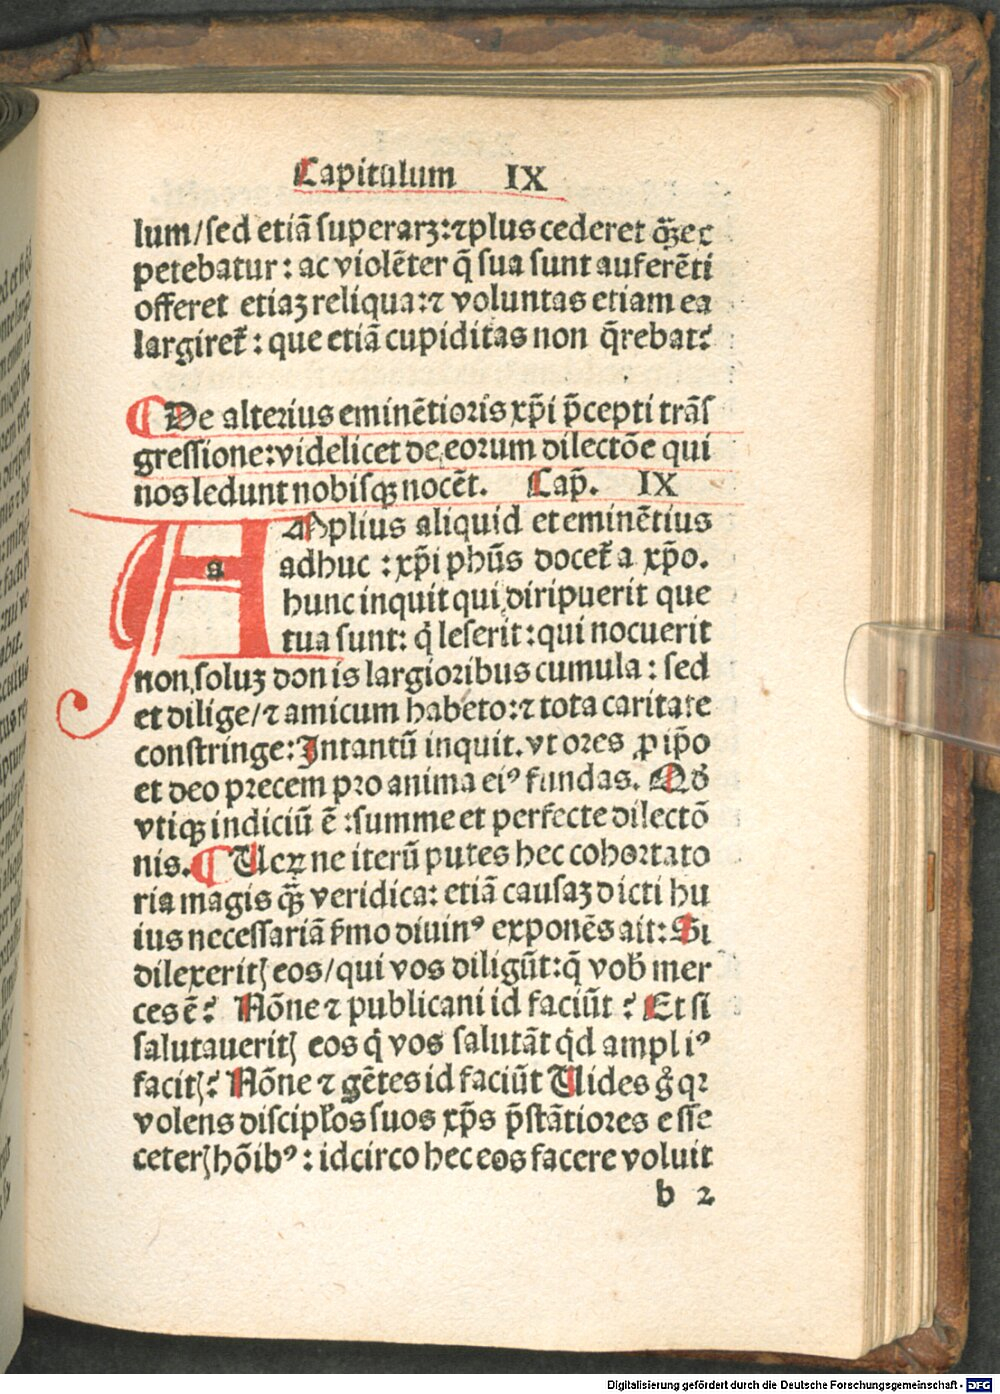 Capitulum IX
lum/sed etiā superarꝫ:⁊plus cederet q̄ꝫ ec
petebatur : ac violēter q̄ sua sunt auferēti
offeret etiaꝫ reliqua:⁊ voluntas etiam ea
largiret᷑ : que etiā cupiditas non q̄rebat᷑
De alterius eminētioris xp̄i p̄cepti trās
gressione:videlicet de eorum dilectōe qui
nos ledunt nobisqꝫ nocēt. Cap̄. IX
a
AMplius aliquid et eminētius
adhuc : xp̄i phūs docet᷑ a xp̄o.
hunc inquit qui diripuerit que
tua sunt: q̇ leserit : qui nocuerit
non soluꝫ donis largioribus cumula : sed
et dilige/⁊ amicum habeto:⁊ tota caritate
constringe: Intantū inquit. vt ores ꝓ ip̄o
et deo precem pro anima eiꝰ fundas. Qḋ
vtiqꝫ indiciū ē : summe et perfecte dilectō
nis. Ueꝝ ne iterū putes hec cohortato
ria magis q̄ꝫ veridica: etiā causaꝫ dicti hu
ius necessariā ẜmo diuinꝰ exponēs ait: Si
dilexeritꝭ eos/qui vos diligūt:q̄ vob̄ mer
ces ē? Nōne ⁊ publicani id faciūt ? Et si
salutaueritꝭ eos q̇ vos salutāt qd̄ ampliꝰ
facitꝭ? Nōne ⁊ gētes id faciūt Uides g̊ qꝛ
volens discipłos suos xp̄s p̄stātiores esse
ceterꝭ hōibꝰ : idcirco hec eos facere voluit
b 2
Digitalisierung gefördert durch die Deutsche Forschungsgemeinschaft - DFG